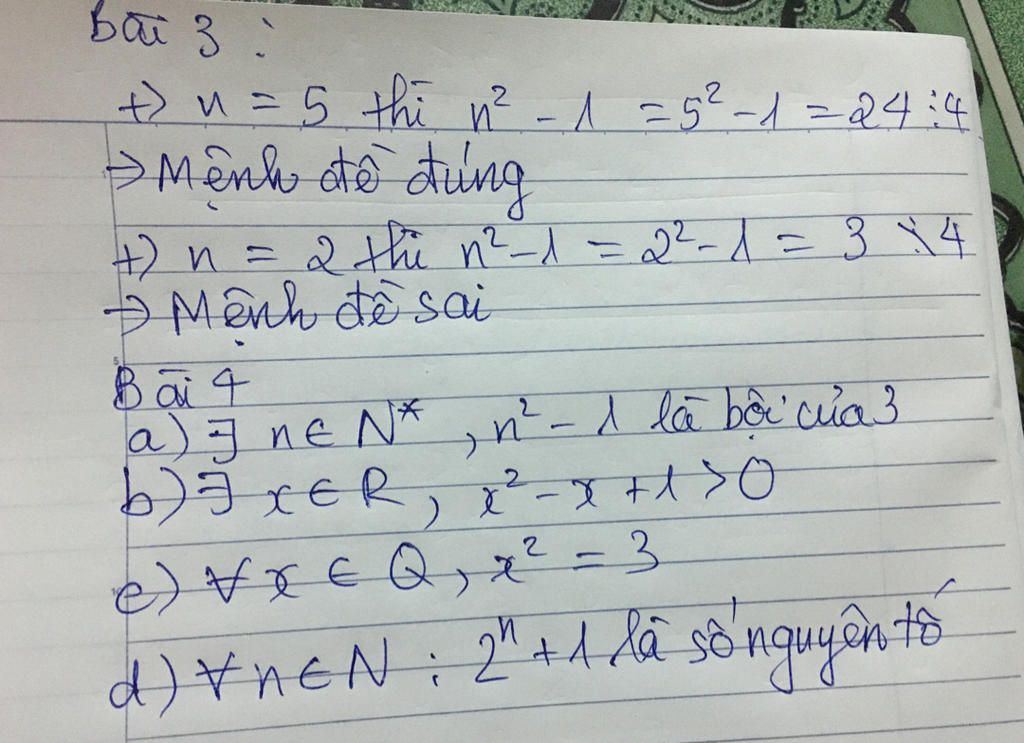 Bài 3 :
+) n = 5 thì n² - 1 = 5² - 1 = 24 ⋮ 4
→ Mệnh đề đúng
+) n = 2 thì n² - 1 = 2² - 1 = 3 ⋮̸ 4
→ Mệnh đề sai
Bài 4
a) ∃ n ∈ N* , n² - 1 là bội của 3
b) ∃ x ∈ R , x² - x + 1 > 0
c) ∀ x ∈ Q , x² = 3
d) ∀ n ∈ N : 2ⁿ + 1 là số nguyên tố